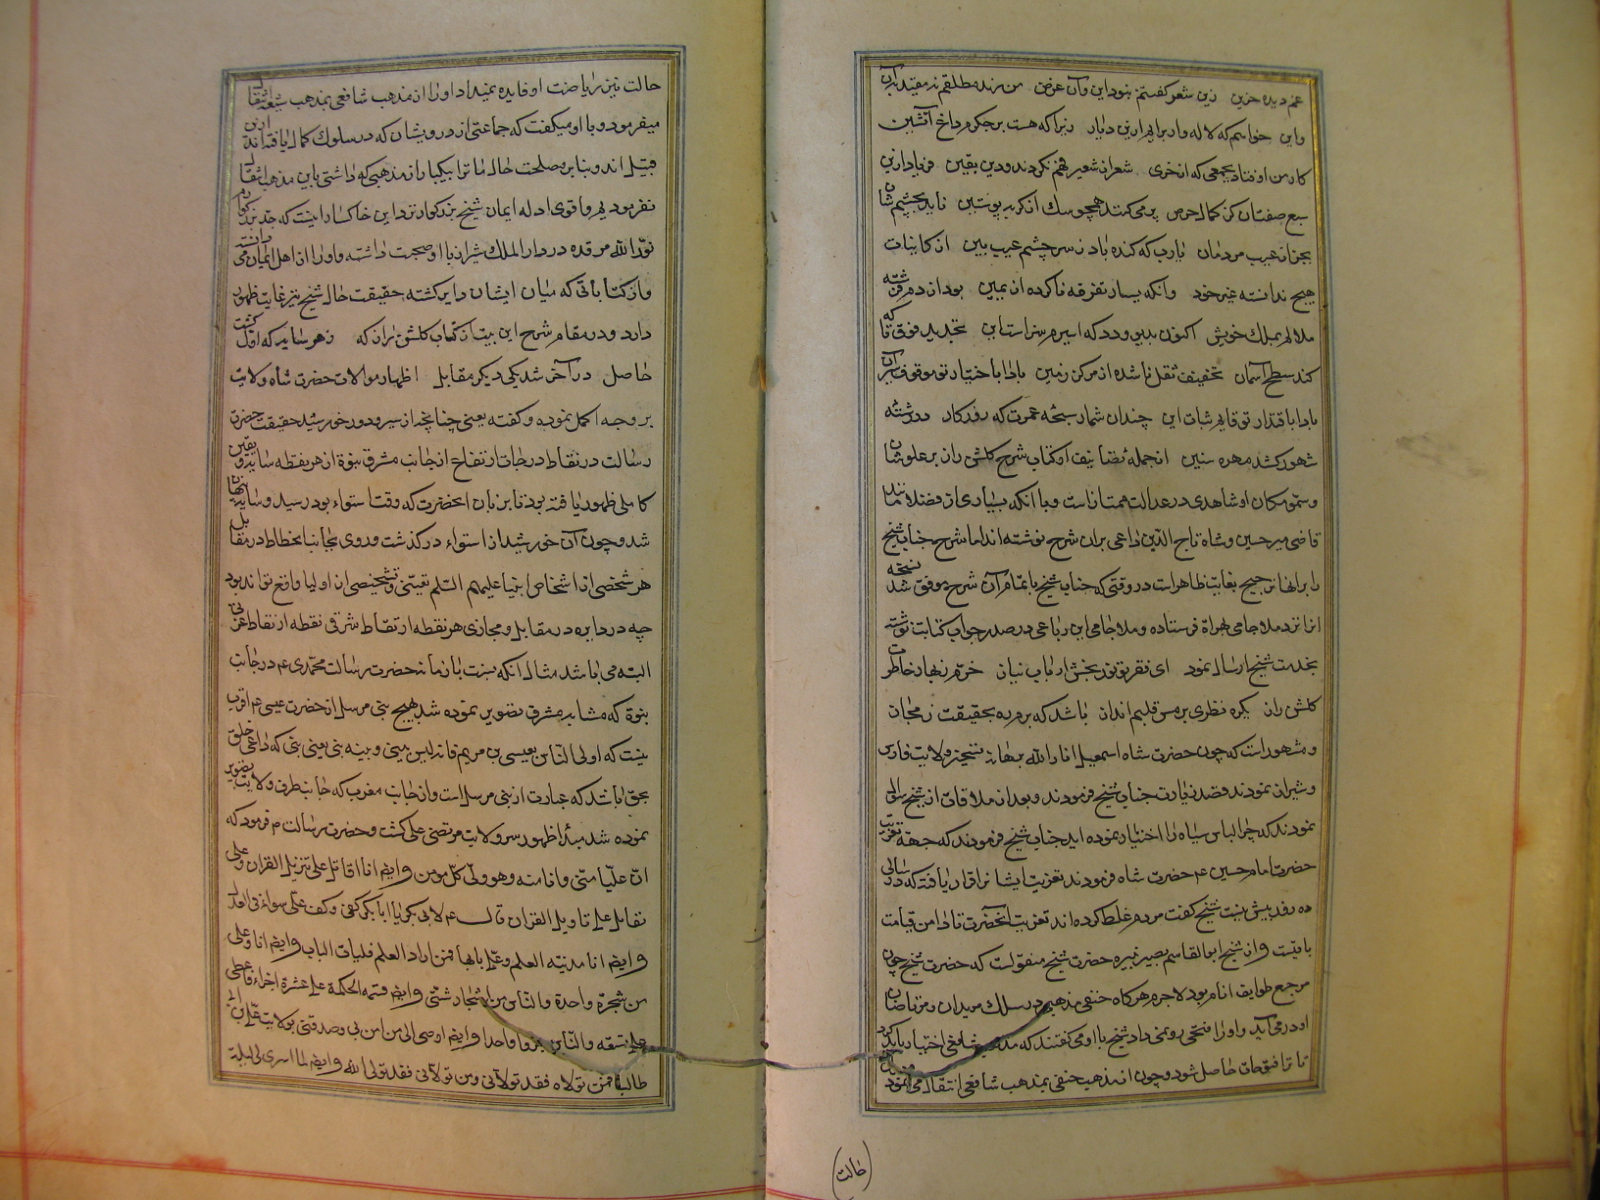 غم دیده حزین زین شعر گفتنم نبود این و آن غرض من رند مطلقم نه مقید
و این خواهم که لاله وار برایم ازین دیار زیرا که هست بر جگرم داغ آتشین
کار من اوفتاد بجمعی که از خری شعر از شعیر فهم نکردند و دین یقین فریاد ازین
سبع صفتان کز کمال حرص پر می‌کنند همچو سگ از گربه پوستین ناید بچشم شان
بجز از عیب مردمان یا رب که کنده باد ز سر چشم عیب بین از کاینات
هیچ ندانسته غیر خود وانکه یسار تفرقه ناکرده از یمین
ملا لم بملک خویش اکنون
کند سطح آسمان تخفیف ثقل ناشده از مرکز زمین بادا باختیار تو موقوف
بادا باقتدار تو قایم ثبات این چندان شمار سبحه عمرت که روزگار در رشته
شهور کشد مهره سنین از جمله تصانیف او کتاب شرح گلشن راز بر علو شان
و سمو مکان او شاهدی در عدالت ممتاز است و با آنکه بسیاری از فضلا مانند
قاضی میر حسین و شاه تاج الدین داعی بران شرح نوشته اند اما شرح جناب شیخ
را برانها ترجیح بغایت ظاهر است در وقتی که جناب شیخ باتمام آن شرح موفق شد نسخه
از انرا نزد ملا جامی بهراة فرستاده و ملا جامی این رباعی در صدر جواب کتابت نوشته
بخدمت شیخ ارسال نمود ای فقر تو نور بخش ارباب نیاز خرم ز بهار خاطرت
گلشن راز یکره نظری بر مس قلبم انداز باشد که برم ره بحقیقت ز مجاز
و مشهور است که چون حضرت شاه اسمعیل انار الله برهانه تسخیر ولایت فارس
و شیراز نمودند قصد زیارت جناب شیخ فرمودند و بعد از ملاقات از شیخ سؤال
نمودند که چرا لباس سیاه را اختیار نموده اید جناب شیخ فرمودند که جهة تعزیت
حضرت امام حسین ع حضرت شاه فرمودند تعزیت ایشان قرار یافته که در سالی
ده روز بیش نیست شیخ گفت مردم غلط کرده اند تعزیت آنحضرت تا دامن قیامت
باقیست و از شیخ ابو القاسم نبیره حضرت شیخ منقولست که حضرت شیخ چون
مرجع طوایف انام بود لاجرم هرگاه حنفی مذهبی در سلک مریدان و مرتاضان
او در می‌آید و او را فتحی رو نمی‌داد شیخ با او می‌گفتند که مذهب شافعی اختیار باید کرد
تا ترا فتوحات حاصل شود و چون از مذهب حنفی بمذهب شافعی انتقال می‌نمود
(حالت)
حالت نیز ریاضت او فایده نمیداد او را از مذهب شافعی بمذهب شیعه انتقال
میفرمود و با او میگفت که جماعتی از درویشان که در سلوک کمال یافته اند ازین
قبیل اند و بنا بر مصلحت حال ما ترا بیکبار از مذهبی که داشتی باین مذهب انتقال
نفرمودیم و اقوی ادله ایمان شیخ بزرگوار نزد این خاکسار اینست که جد بزرگوارم
نور الله مرقده در دار الملک شیراز با او صحبت داشته و او را از اهل ایمان می دانسته
و از کتاباتی که میان ایشان دایر گشته حقیقت حال شیخ نیز غایت ظهور
دارد و در مقام شرح این بیت از کتاب گلشن راز که ز هر سایه که اول گشت
حاصل در آخر شد یکی دیگر مقابل اظهار موالات حضرت شاه ولایت
بر وجه اکمل نموده و گفته یعنی چنانچه از سیر و دور خورشید حقیقت حضرت
رسالت در نقاط درجات ارتفاع از جانب مشرق نبوة از هر نقطه سایه و تعین
کاملی ظهور یافته بود تا بزمان آنحضرت که وقت استواء بود رسید و سایه پنهان
شد و چون آن خورشید از استواء در گذشت و روی بجانب انحطاط در مقابل
هر شخصی از اشخاص انبیا علیهم السلم تعینی و تشخیصی از اولیا واقع تواند بود
چه در دایره در مقابل و مجازی هر نقطه از نقاط شرقی نقطه از نقاط غربی
البته می باشد مثال آنکه نسبت بازمانه حضرت رسالت محمدی ع در جانب
نبوة که مشابه مشرق تصویر نموده شد هیچ نبی مرسل از حضرت عیسی ع اقرب
نیست که اولی الناس بعیسی بن مریم فانه لیس بینی و بینه نبی یعنی نبی که داعی خلق
بحق باشد که عبارت از نبی مرسل است و از جانب مغرب که جانب طرف ولایت تصویر
نموده شد مبدأ ظهور سر ولایت مرتضی علی گشت و حضرت رسالت م فرمود که
ان علیا منی و انا منه و هو ولی کل مومن و ایضا انا اقاتل علی تنزیل القران و علی
یقاتل علی تاویل القران قال ع لابی بکر یا ابا بکر کفی و کف علی سواء فی العدل
و ایضا انا مدینه العلم و علی بابها فمن اراد العلم فلیات الباب و ایضا انا و علی
من شجرة واحدة و الناس من اشجار شتی و ایضا قسمه الحکمة علی عشرة اجزاء فاعطی
علی تسعه و الناس جزوا واحدا و ایضا اوصی الی من امن بی و صدقنی بولایت علی بن ابی
طالب فمن تولاه فقد تولانی و من تولانی فقد تولی الله و ایضا لما اسری لی لیلة